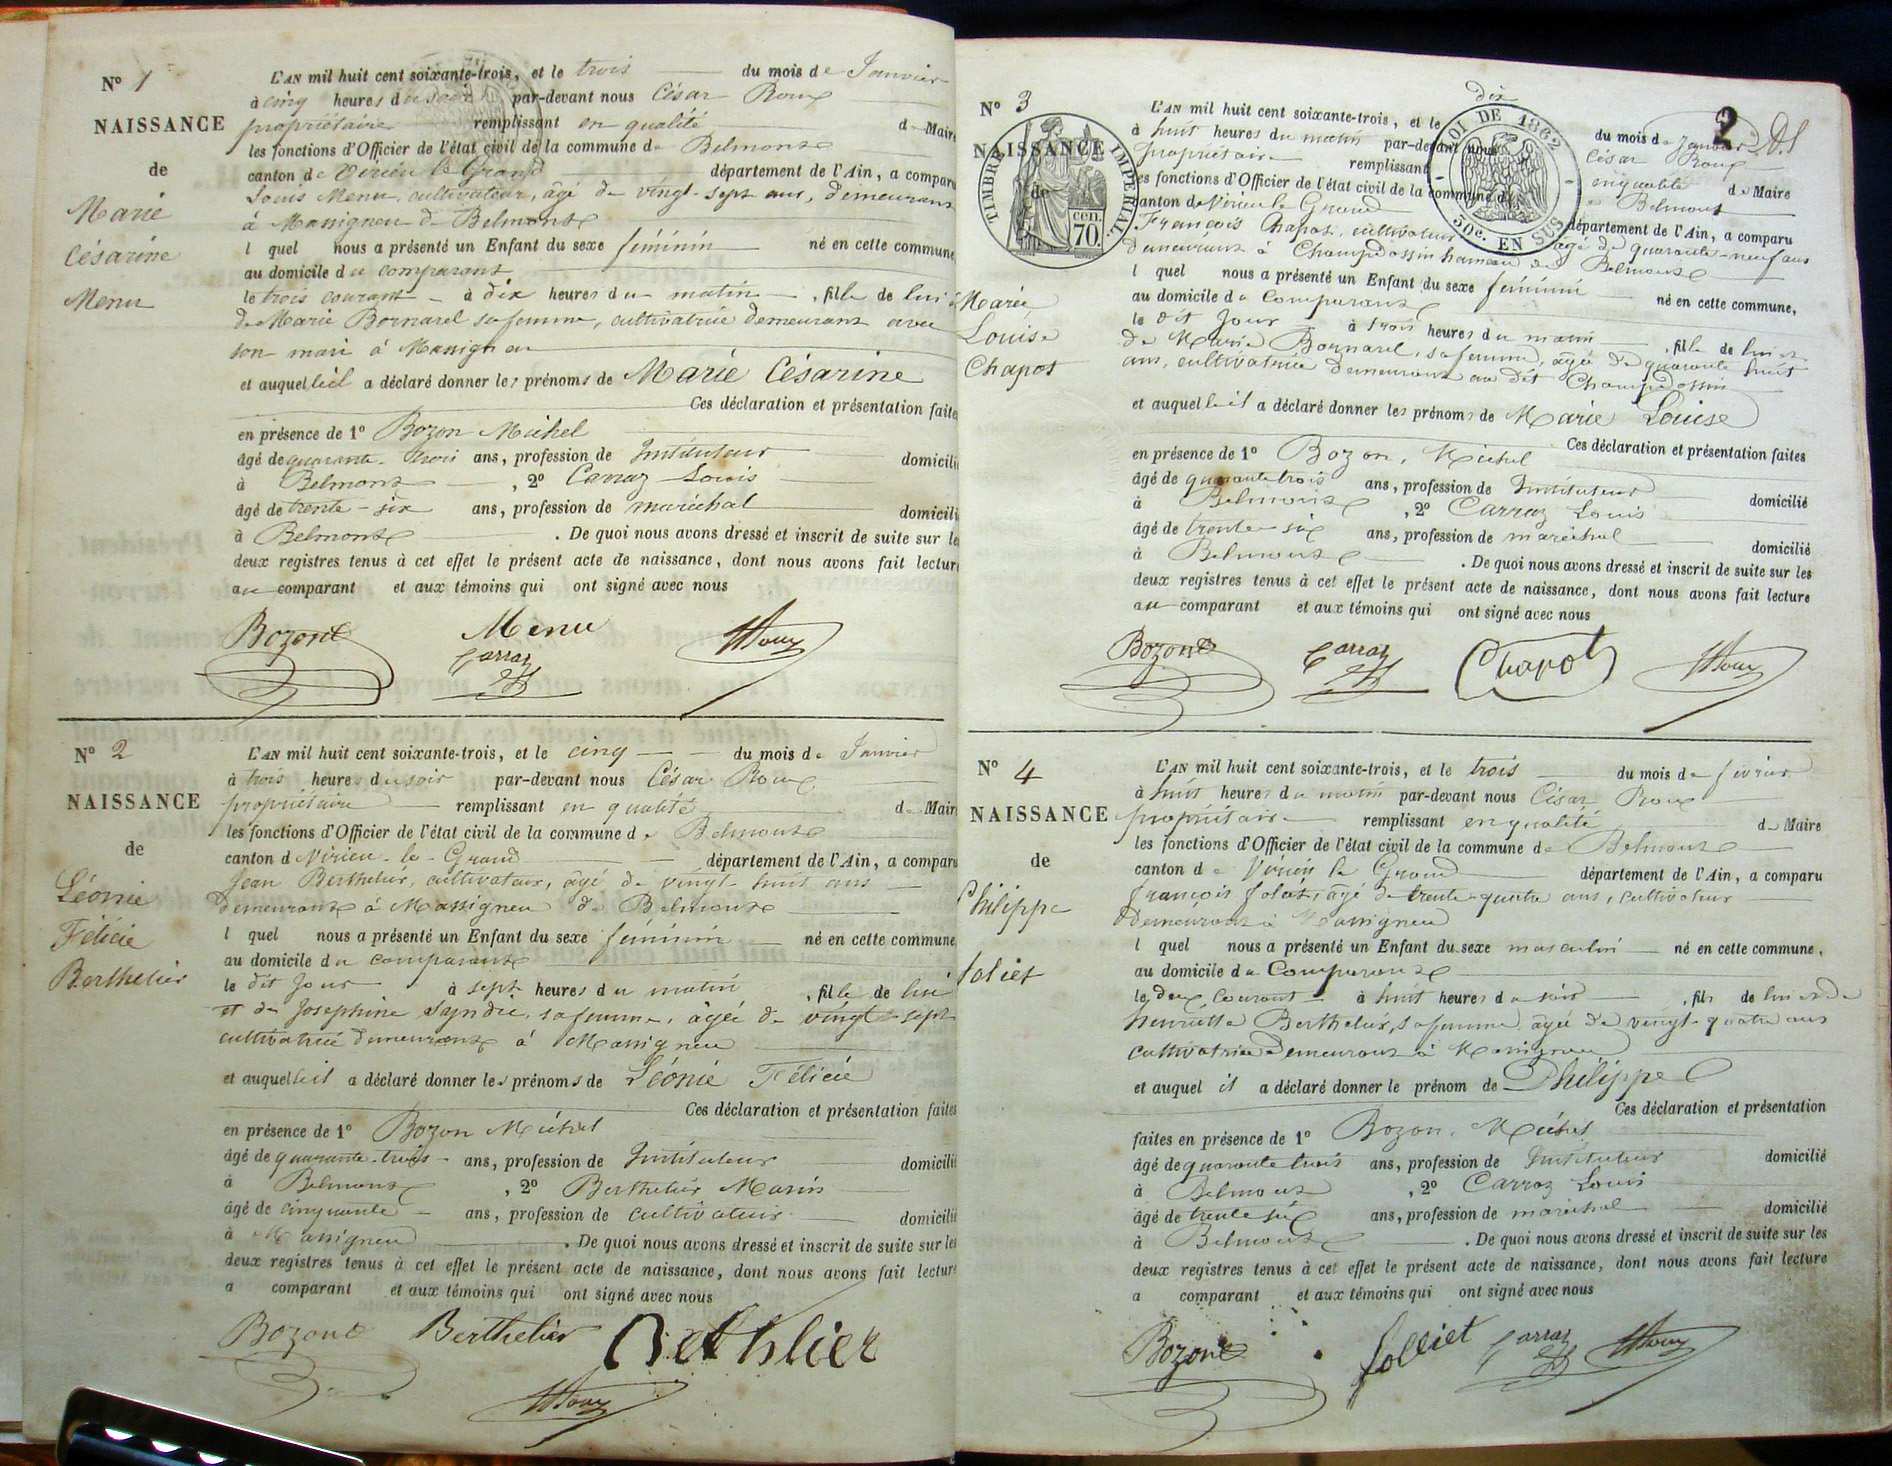 N° 1
NAISSANCE
de
Marie
Césarine
Menu
L'AN mil huit cent soixante-trois, et le trois du mois de Janvier
à cinq heures du soir par-devant nous César Roux
propriétaire remplissant en qualité de Maire
les fonctions d'Officier de l'état civil de la commune de Belmont
canton de Virieu le Grand département de l'Ain, a comparu
Louis Menu, cultivateur, âgé de vingt-sept ans, demeurant
à Massigneu de Belmont
lequel nous a présenté un Enfant du sexe féminin né en cette commune
au domicile du comparant
le trois courant à dix heures du matin, fille de lui &
de Marie Bornarel sa femme, cultivatrice demeurant avec
son mari à Massigneu
et auquel il a déclaré donner les prénoms de Marie Césarine
Ces déclaration et présentation faites
en présence de 1° Bozon Michel
âgé de quarante-trois ans, profession de Instituteur domicilié
à Belmont, 2° Carraz Louis
âgé de trente-six ans, profession de maréchal domicilié
à Belmont. De quoi nous avons dressé et inscrit de suite sur les
deux registres tenus à cet effet le présent acte de naissance, dont nous avons fait lecture
au comparant et aux témoins qui ont signé avec nous
Bozon Menu Carraz Roux
N° 2
NAISSANCE
de
Léonie
Félicie
Berthelier
L'AN mil huit cent soixante-trois, et le cinq du mois de Janvier
à trois heures du soir par-devant nous César Roux
propriétaire remplissant en qualité de Maire
les fonctions d'Officier de l'état civil de la commune de Belmont
canton de Virieu-le-Grand département de l'Ain, a comparu
Jean Berthelier, cultivateur, âgé de vingt-huit ans
demeurant à Massigneu de Belmont
lequel nous a présenté un Enfant du sexe féminin né en cette commune
au domicile du comparant
le dit Jour à sept heures du matin, fille de lui
et de Josephine Syndic, sa femme, âgée de vingt-sept
cultivatrice demeurant à Massigneu
et auquel il a déclaré donner les prénoms de Léonie Félicie
Ces déclaration et présentation faites
en présence de 1° Bozon Michel
âgé de quarante-trois ans, profession de Instituteur domicilié
à Belmont, 2° Berthelier Marin
âgé de cinquante ans, profession de cultivateur domicilié
à Massigneu. De quoi nous avons dressé et inscrit de suite sur les
deux registres tenus à cet effet le présent acte de naissance, dont nous avons fait lecture
a comparant et aux témoins qui ont signé avec nous
Bozon Berthelier Bethlier
Roux
2
N° 3
NAISSANCE
de
Marie
Louise
Chapot
TIMBRE IMPERIAL
70 cen.
LOI DE 1862
50c. EN SUS
dix
L'AN mil huit cent soixante-trois, et le du mois de Janvier
à huit heures du matin par-devant nous César Roux
propriétaire remplissant en qualité de Maire
les fonctions d'Officier de l'état civil de la commune de Belmont
canton de Virieu le Grand département de l'Ain, a comparu
François Chapot, cultivateur âgé de quarante-neuf ans
demeurant à Champdossin hameau de Belmont
lequel nous a présenté un Enfant du sexe féminin né en cette commune,
au domicile du comparant
le dit Jour à trois heures du matin, fille de lui et
de Marie Bornarel, sa femme, âgée de quarante huit
ans, cultivatrice demeurant au dit Champdossin
et auquel il a déclaré donner les prénoms de Marie Louise
Ces déclaration et présentation faites
en présence de 1° Bozon, Michel
âgé de quarante trois ans, profession de Instituteur domicilié
à Belmont, 2° Carraz Louis
âgé de trente-six ans, profession de maréchal domicilié
à Belmont. De quoi nous avons dressé et inscrit de suite sur les
deux registres tenus à cet effet le présent acte de naissance, dont nous avons fait lecture
au comparant et aux témoins qui ont signé avec nous
Bozon Carraz Chapot Roux
N° 4
NAISSANCE
de
Philippe
foliet
L'AN mil huit cent soixante-trois, et le trois du mois de février
à huit heures du matin par-devant nous César Roux
propriétaire remplissant en qualité de Maire
les fonctions d'Officier de l'état civil de la commune de Belmont
canton de Virieu le Grand département de l'Ain, a comparu
françois foliet, âgé de trente-quatre ans, cultivateur
demeurant à Massigneu
lequel nous a présenté un Enfant du sexe masculin né en cette commune,
au domicile du Comparant
le deux courant à huit heures du soir, fils de lui et de
henriette Berthelier, sa femme âgée de vingt-quatre ans
cultivatrice demeurant à Massigneu
et auquel il a déclaré donner le prénom de Philippe
Ces déclaration et présentation
faites en présence de 1° Bozon, Michel
âgé de quarante trois ans, profession de Instituteur domicilié
à Belmont, 2° Carraz Louis
âgé de trente six ans, profession de maréchal domicilié
à Belmont. De quoi nous avons dressé et inscrit de suite sur les
deux registres tenus à cet effet le présent acte de naissance, dont nous avons fait lecture
a comparant et aux témoins qui ont signé avec nous
Bozon folliet Carraz Roux